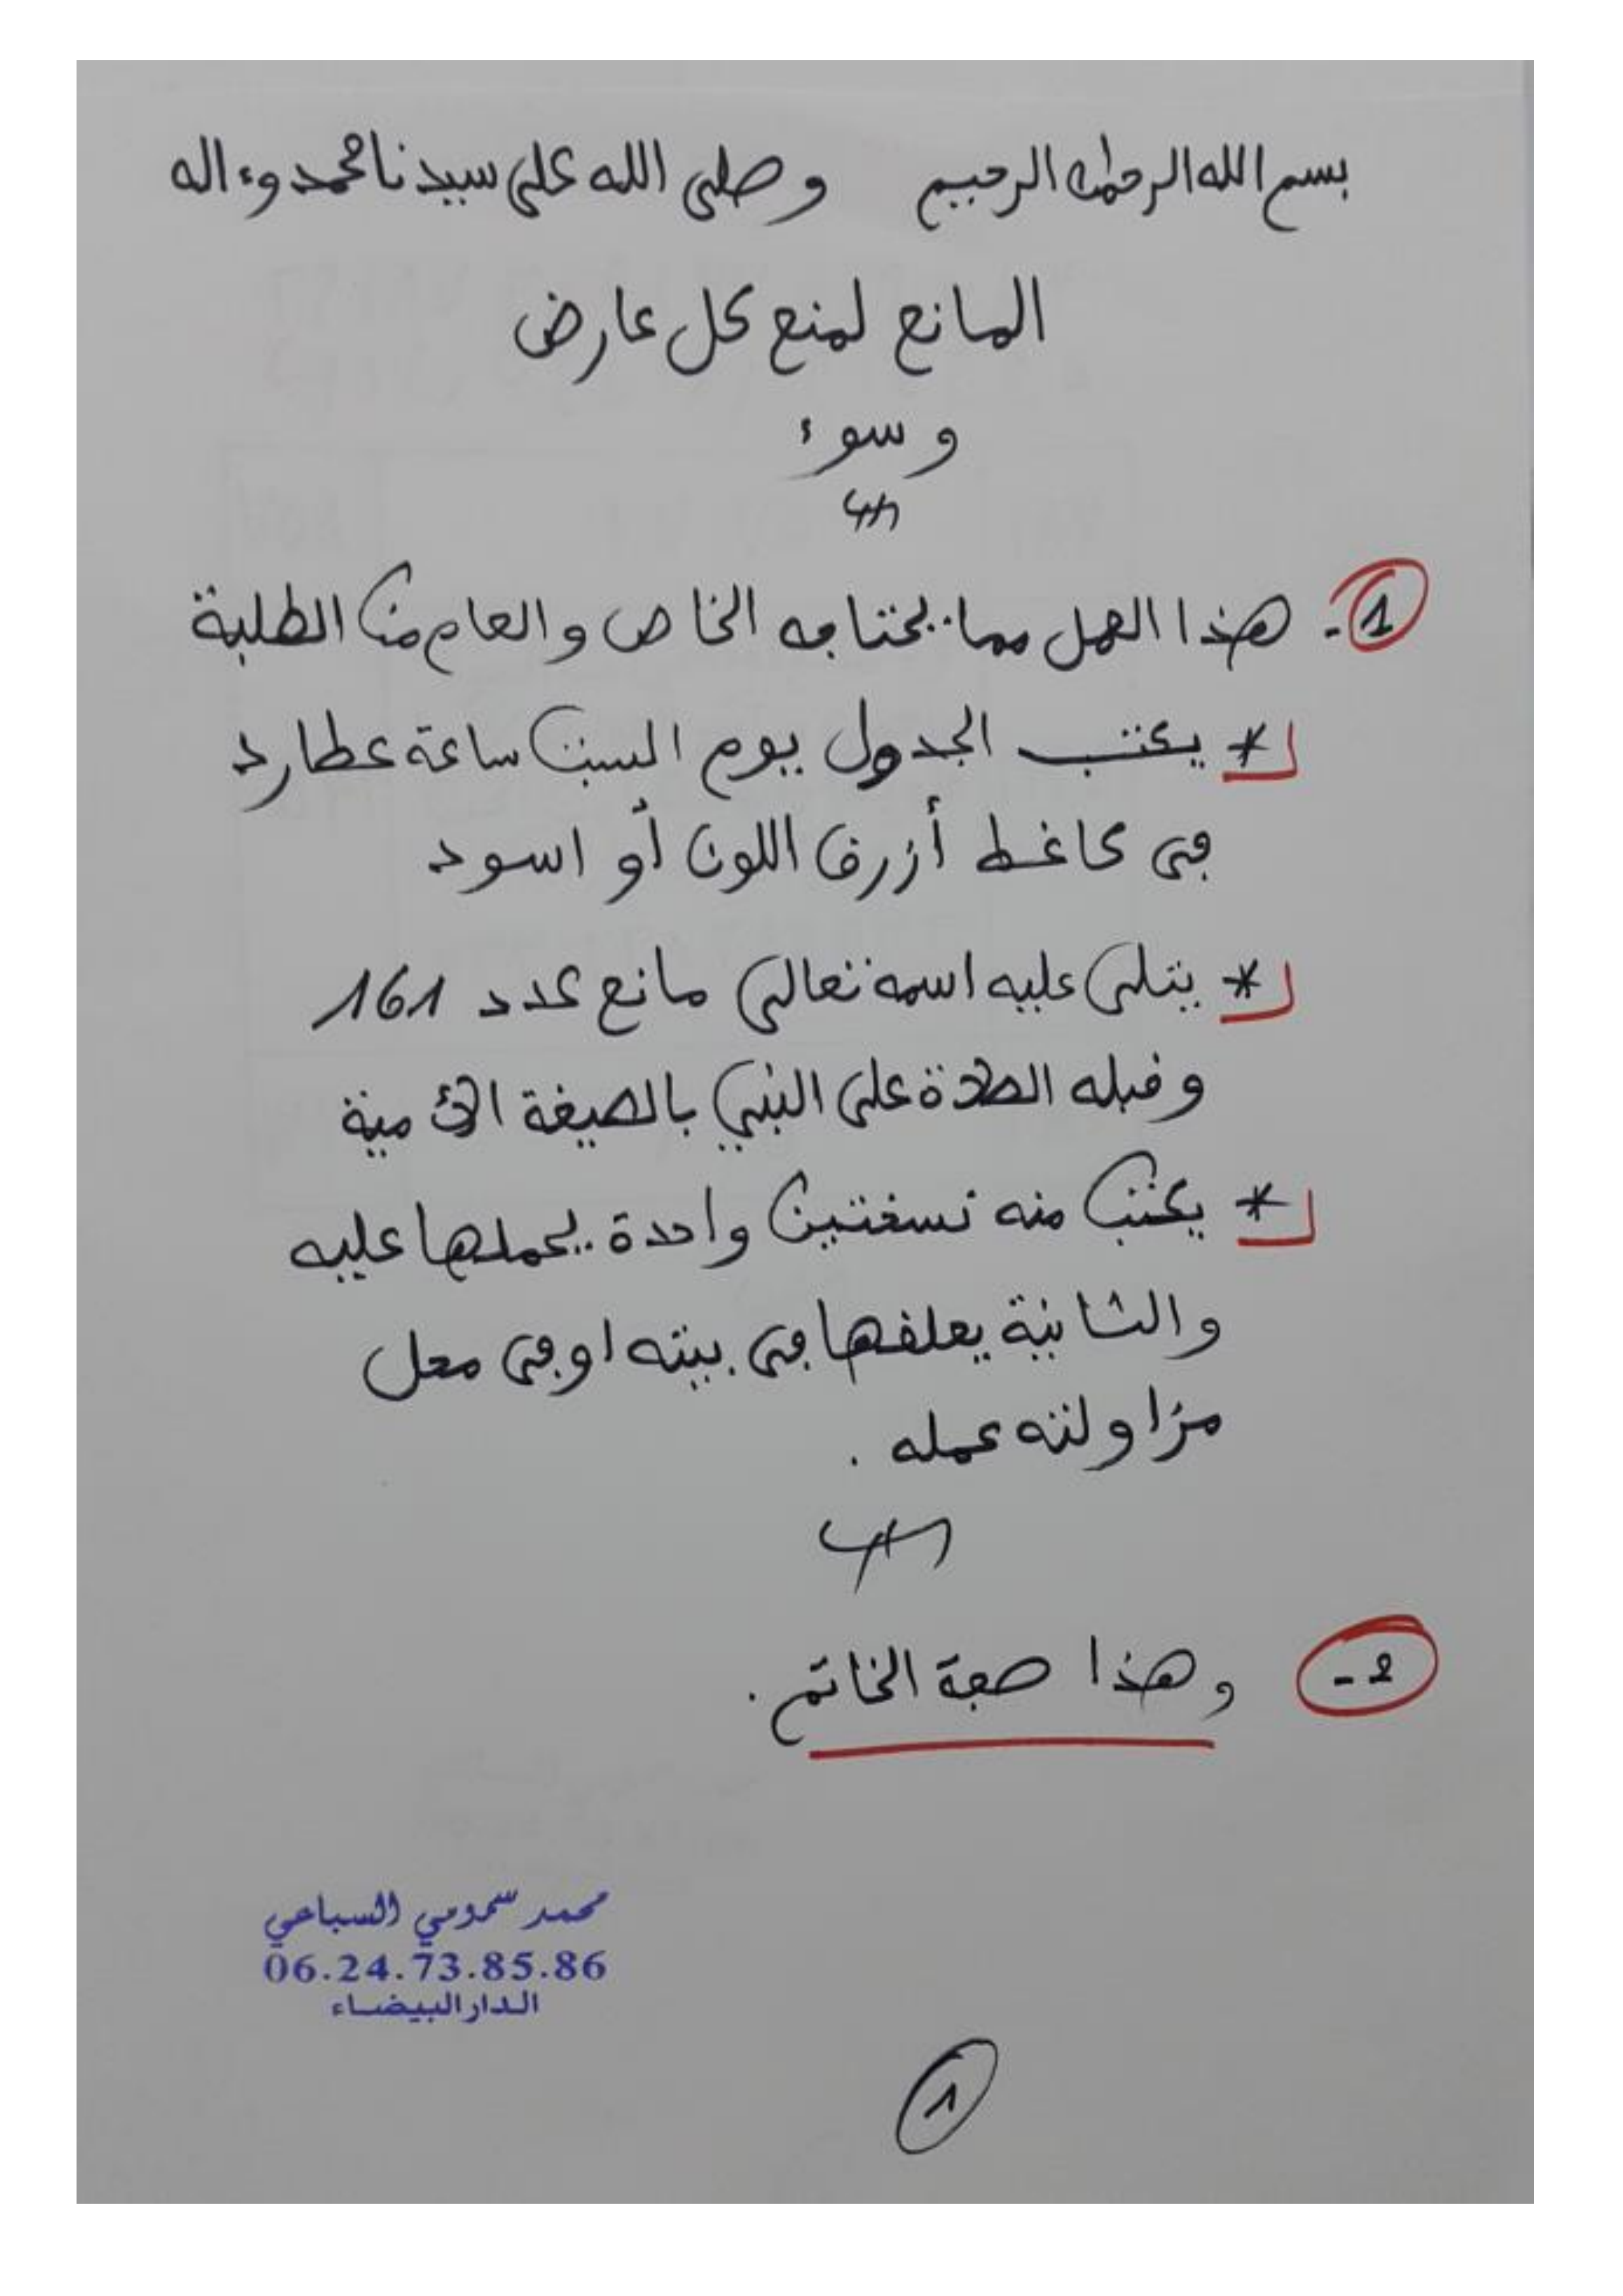 بسم الله الرحمان الرحيم وصلى الله على سيدنا محمد وءاله
المانع لمنع كل عارض
وسوء
1- هذا العمل مما يحتاجه الخاص والعام من الطلبة
* يكتب الجدول يوم السبت ساعة عطارد
في كاغط أزرق اللون أو اسود
* يتلى عليه اسمه تعالى مانع عدد 161
وقبله الصلاة على النبي بالصيغة الأمية
* يكتب منه نسختين واحدة يحملها عليه
والثانية يعلقها في بيته او في محل
مزاولته عمله .
2- وهذا صفة الخاتم .
محمد سمومي السباعي
06.24.73.85.86
الدار البيضاء
1